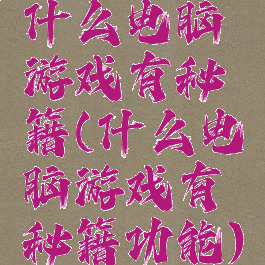 什么电脑
游戏有秘
籍(什么电
脑游戏有
秘籍功能)